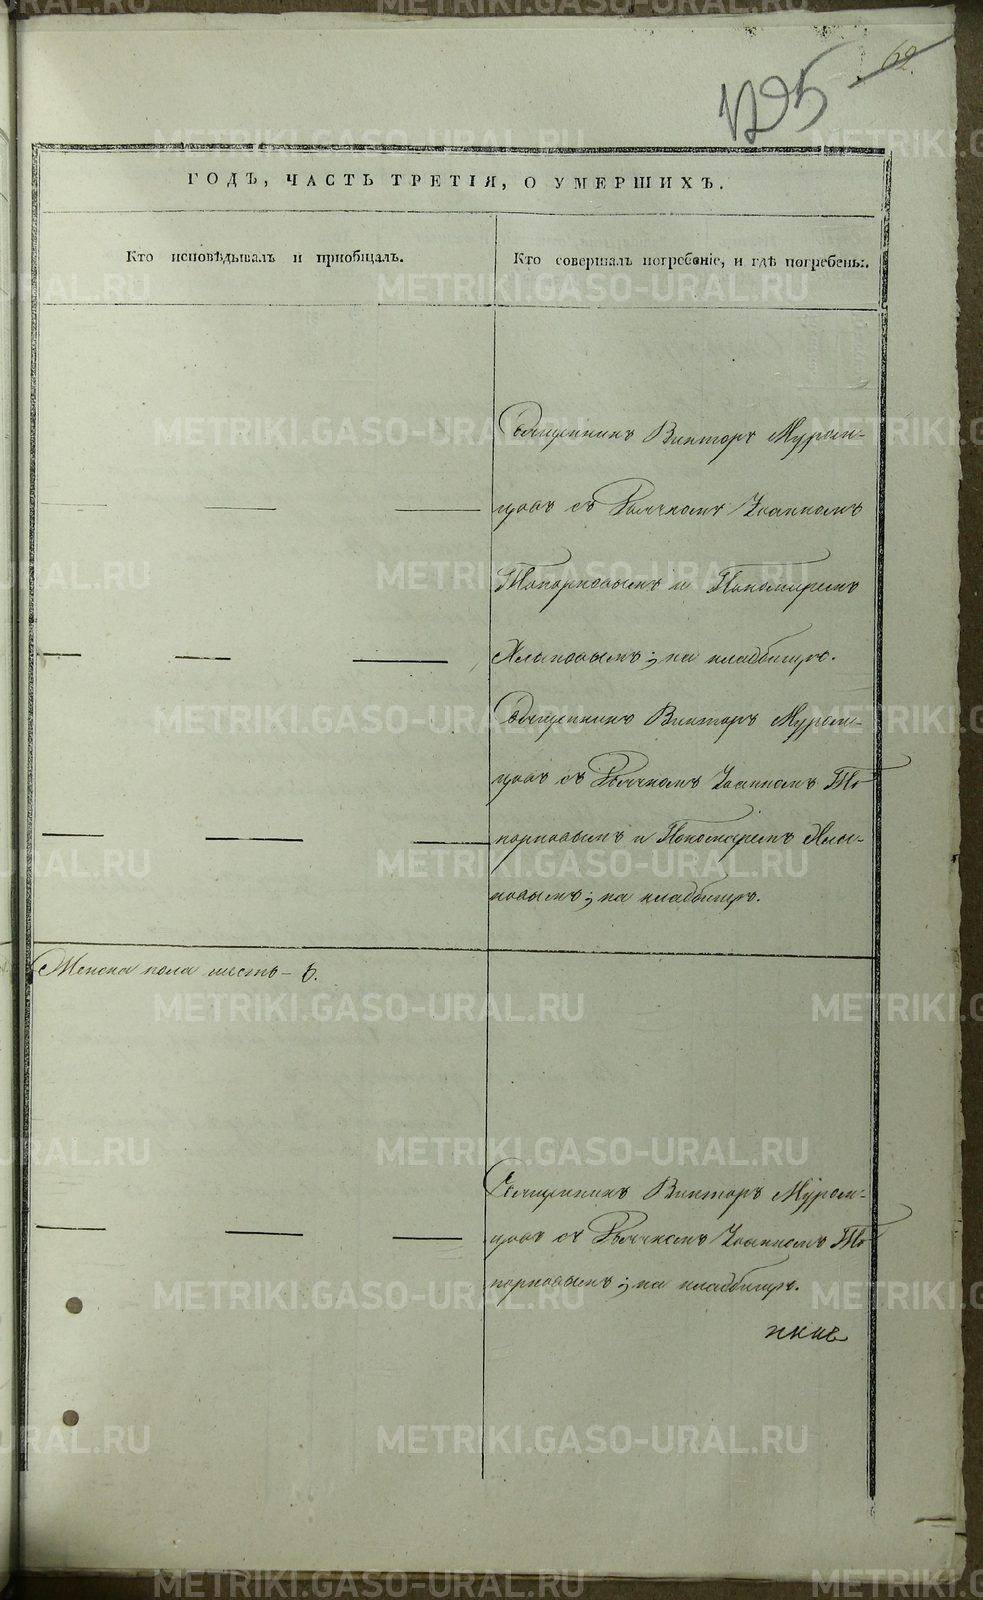 69
1295
ГОДЪ, ЧАСТЬ ТРЕТІЯ, О УМЕРШИХЪ.
Кто исповѣдывалъ и пріобщалъ.
Кто совершалъ погребеніе, и гдѣ погребены.
Священникъ Викторъ Муром-
цовъ съ Дьячкомъ Іоанномъ
Топорковымъ и Пономаремъ
; на кладбищѣ.
Священникъ Викторъ Муром-
цовъ съ Дьячкомъ Іоанномъ То
порковымъ и Пономаремъ
; на кладбищѣ.
Женска пола шесть - 6.
Священникъ Викторъ Муром-
цовъ съ Дьячкомъ Іоанномъ То
порковымъ; на кладбищѣ.
METRIKI.GASO-URAL.RU